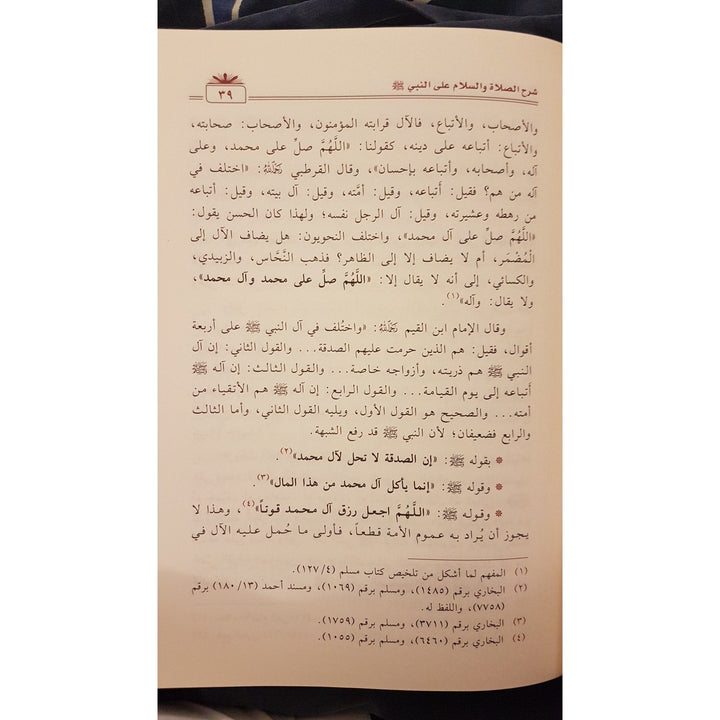 شرح الصلاة والسلام على النبي ﷺ
٣٩
والأصحاب، والأتباع، فالآل قرابته المؤمنون، والأصحاب: صحابته،
والأتباع: أتباعه على دينه، كقولنا: «اللَّهُمَّ صلِّ على محمد، وعلى
آله، وأصحابه، وأتباعه بإحسان»، وقال القرطبي رَحِمَهُ اللهُ: «اختلف في
آله من هم؟ فقيل: أتباعه، وقيل: أمَّته، وقيل: آل بيته، وقيل: أتباعه
من رهطه وعشيرته، وقيل: آل الرجل نفسه؛ ولهذا كان الحسن يقول:
«اللَّهُمَّ صلِّ على آل محمد»، واختلف النحويون: هل يضاف الآل إلى
الْمُضْمَر، أم لا يضاف إلا إلى الظاهر؟ فذهب النَّحَّاس، والزبيدي،
والكسائي، إلى أنه لا يقال إلا: «اللَّهُمَّ صلِّ على محمد وآل محمد»،
ولا يقال: وآله»(١).
وقال الإمام ابن القيم رَحِمَهُ اللهُ: «واختُلف في آل النبي ﷺ على أربعة
أقوال، فقيل: هم الذين حرمت عليهم الصدقة... والقول الثاني: إن آل
النبي ﷺ هم ذريته، وأزواجه خاصة... والقول الثالث: إن آله ﷺ
أَتباعه إلى يوم القيامة... والقول الرابع: إن آله ﷺ هم الأتقياء من
أمته... والصحيح هو القول الأول، ويليه القول الثاني، وأما الثالث
والرابع فضعيفان؛ لأن النبي ﷺ قد رفع الشبهة.
* بقوله ﷺ: «إن الصدقة لا تحل لآل محمد»(٢).
* وقوله ﷺ: «إنما يأكل آل محمد من هذا المال»(٣).
* وقوله ﷺ: «اللَّهُمَّ اجعل رزق آل محمد قوتاً»(٤)، وهذا لا
يجوز أن يُراد به عموم الأمة قطعاً، فأولى ما حُمل عليه الآل في
(١) المفهم لما أشكل من تلخيص كتاب مسلم (٤/ ١٢٧).
(٢) البخاري برقم (١٤٨٥)، ومسلم برقم (١٠٦٩)، ومسند أحمد (١٣/ ١٨٠) برقم
(٧٧٥٨)، واللفظ له.
(٣) البخاري برقم (٣٧١١)، ومسلم برقم (١٧٥٩).
(٤) البخاري برقم (٦٤٦٠)، ومسلم برقم (١٠٥٥).